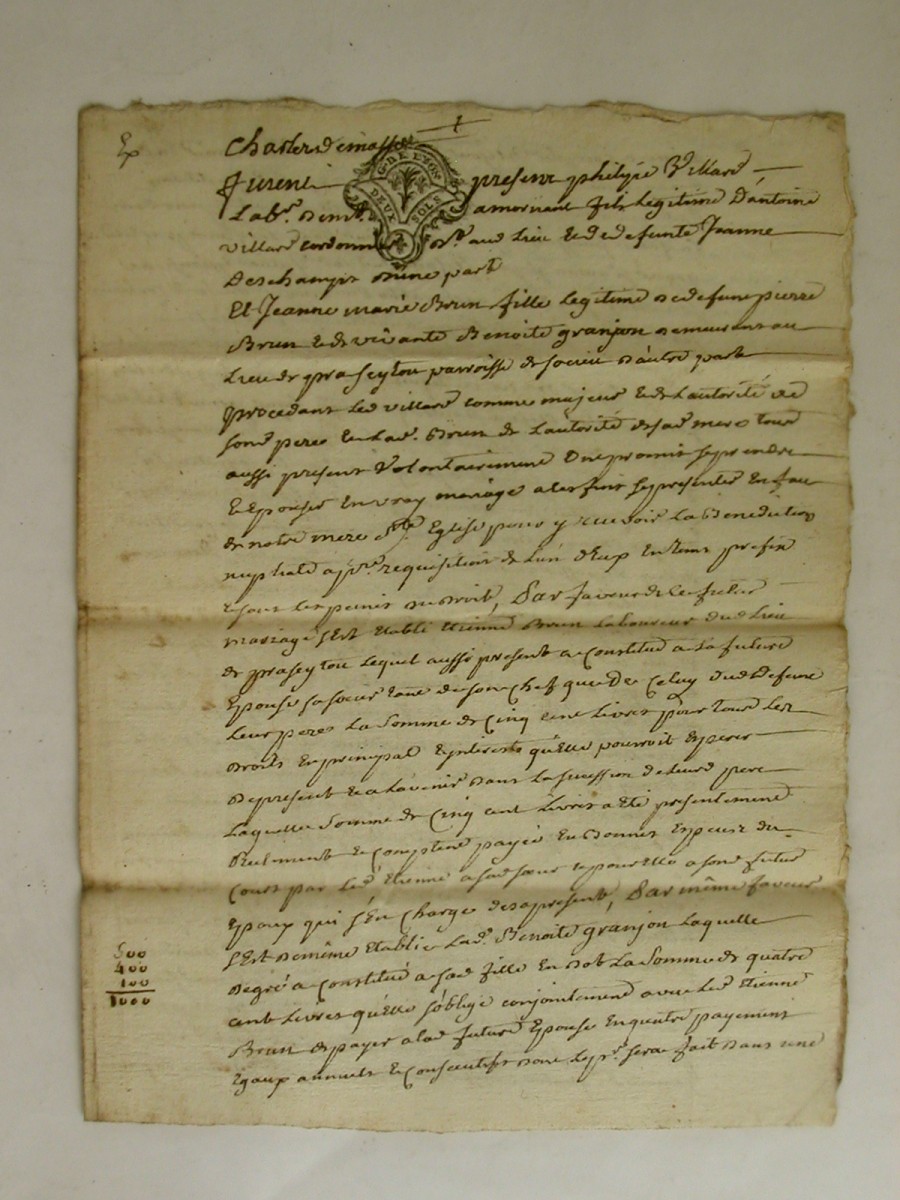 Ex
furent present philipe Villard
G. DE LYON
DEUX SOLS
Lab.r a mornant fils Legitime D'antoine
villard cordonnier aud Lieu & de defunte Jeanne
Deschamps d'une part
Et Jeanne marie Brun fille Legitime de defunt pierre
Brun & de vivante Benoite granjon demeurant au
Lieu de praseytou parroisse de d'autre part
procedant Led villard comme majeur & de L'autorité de
son pere & Lad. Brun de L'autorité de sad mere tous
aussi present Volontairement ont promis se prendre
& Epouser En vray mariage a ces fins se presenter En face
de notre mere Ste Eglise pour y recevoir La Benediction
nuptiale a p.re requisition de L'un d'eux En tems prefix
sous Les peines de droit, Par faveur de ce futur
mariage s'Est Etabli Etienne Brun Laboureur dud Lieu
de praseytou Lequel aussi present a Constitué a La future
Epouse sa soeur tant de son Chef que De Celuy dud Defunt
Leur pere La Somme de Cinq cent Livres pour tous Les
droits En principal & interests qu'Elle pourroit Esperer
de present & a L'avenir dans La succession de leurd pere
Laquelle Somme de Cinq cent Livres a Eté presentement
Réelment & Comptant payée En Bonnes Especes du
Cours par Led Etienne a sad soeur & pour Elle a sond futur
Epoux qui s'En Charge des a present, Par même faveur
s'Est de même Etablie Lad. Benoite granjon Laquelle
de gré a Constitué a sad fille En dot La Somme de quatre
cent Livres qu'Elle s'oblige conjointement avec Led Etienne
Brun de payer a lad future Epouse En quatre payement
Egaux annuels & Consecutifs dont Le pr. sera fait dans une
500
400
100
1000